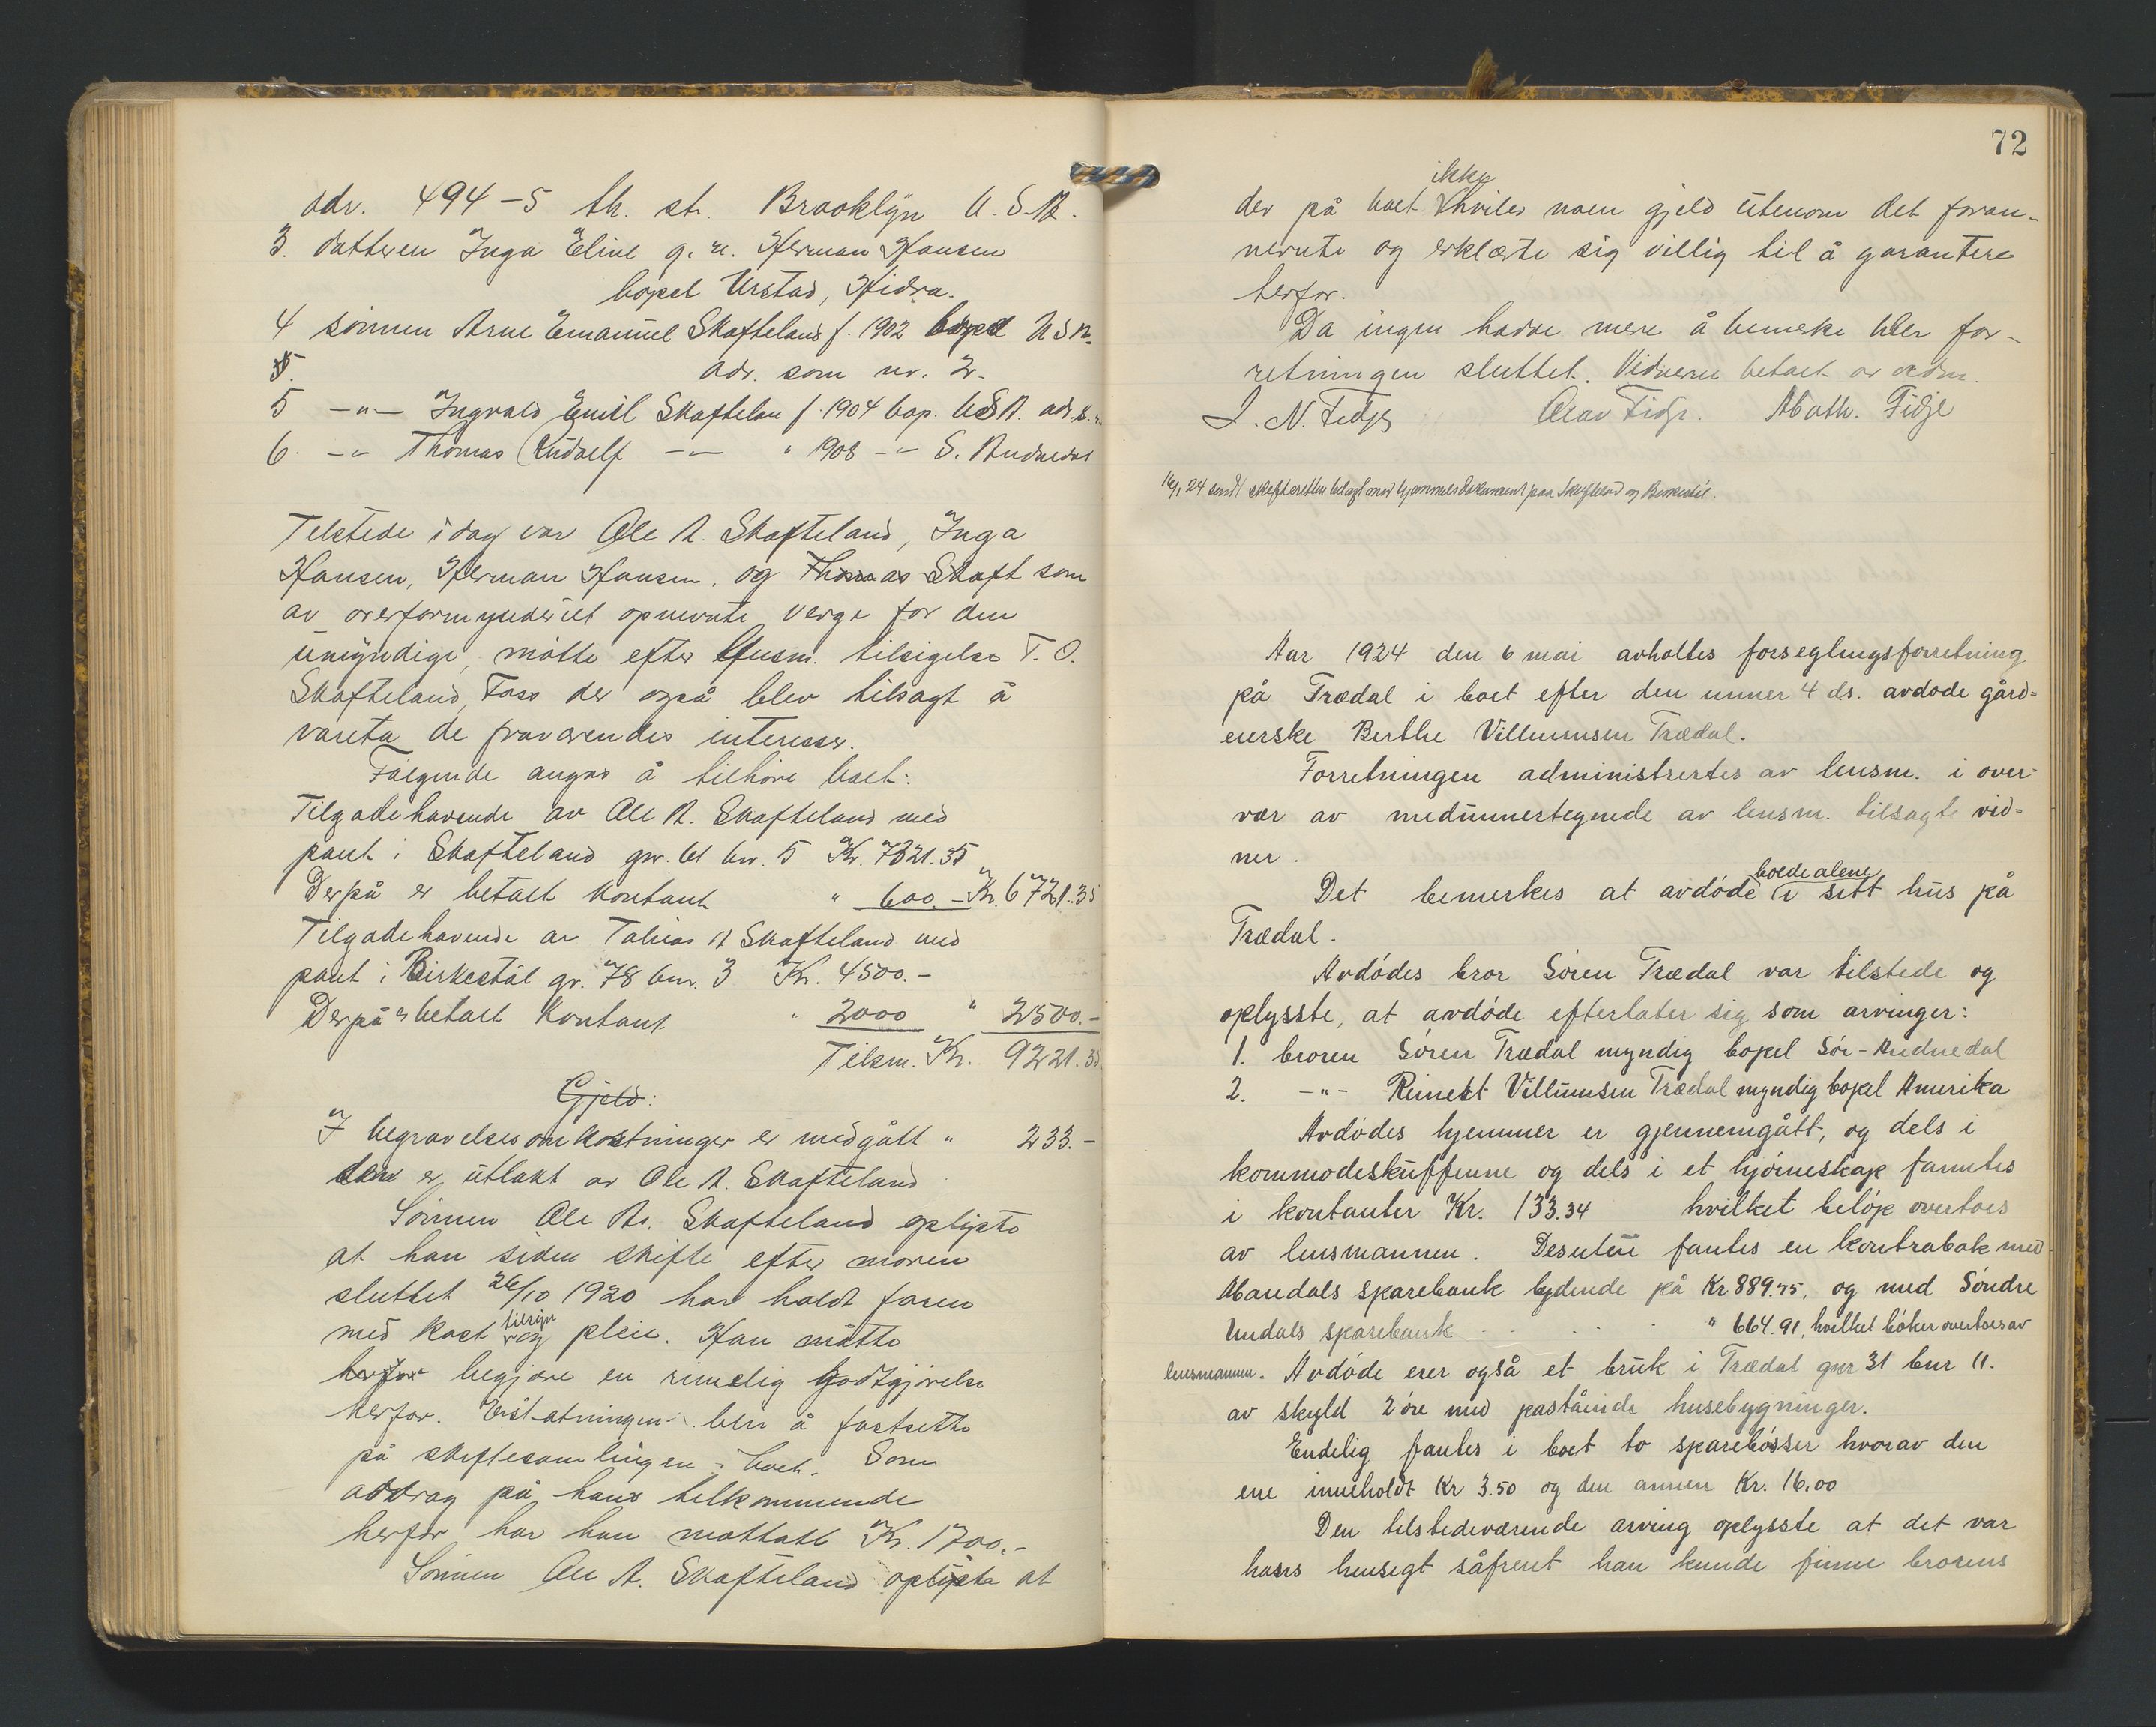 adr. 494-5 th. st. Brooklyn U.S.A.
3. datteren Inga Eline g. m. Herman Hansen
bopel Urstad, Hidra.
4 sönnen Arne Emanuel Skafteland f. 1902 bopel USA.
5. adr. som nr. 2.
5 -"- Ingvald Emil Skaftelan f. 1904 bop. USA. adr. s.
6. -"- Thomas Rudolf -"- " 1908 -"- S. Audnedal
Tilstede i dag var Ole A. Skafteland, Inga
Hansen, Herman Hansen, og Thomas Skaft som
av overformynderiet opnevnte verge for den
umyndige, mötte efter lensm. tilsigelse T. O.
Skafteland, Foss der også blev tilsagt å
vareta de fraværendes interesser.
Fölgende angas å tilhöre boet:
Tilgodehavende av Ole A. Skafteland med
pant i Skafteland gnr. 61 bnr. 5 Kr. 7321.35
Derpå er betalt kontant " 600.- Kr. 6721.35
Tilgodehavende av Tobias A Skafteland med
pant i Birkestöl gr. 78 bnr. 3 Kr. 4500.-
Derpå er betalt kontant " 2000 " 2500.-
Tilsm. Kr. 9221.35
Gjeld:
I begravelsesomkostninger er medgått " 233.-
den er utlakt av Ole A. Skafteland
Sönnen Ole A. Skafteland oplyste
at han siden skifte efter moren
sluttet 26/10 1920 har holdt faren
med kost tilsyn og pleie. Han måtte
herfor begjære en rimelig godtgjörelse
herfor. Erstatningen blir å fastsette
på skiftesamlingen i boet. Som
avdrag på hans tilkommende
herfor har han mottatt Kr. 1700.-
Sönnen Ole A. Skafteland oplyste at
72
der på boet ikke hviler noen gjeld utenom det foran-
nevnte og erklærte sig villig til å garantere
herfor.
Da ingen hadde mere å bemerke blev for-
retningen sluttet. Vidnerne betalt av adm.
Olav Fidje. Math. Fidje
16/1 24 sendt skifteretten bilagt med hjemmelsdokument paa Skafteland og Birkestöl.
Aar 1924 den 6 mai avholtes forseglingsforretning
på Trædal i boet efter den unner 4 ds. avdöde gård-
eierske Berthe Villumsen Trædal.
Forretningen administrertes av lensm. i over-
vær av medunnertegnede av lensm. tilsagte vid-
ner.
Det bemerkes at avdöde boede alene i sitt hus på
Trædal.
Avdödes bror Sören Trædal var tilstede og
oplysste, at avdöde efterlater sig som arvinger:
1. broren Sören Trædal myndig bopel Sör-Audnedal
2. -"- Reinert Villumsen Trædal myndig bopel Amerika
Avdödes hjemmer er gjennemgått, og dels i
kommodeskuffenne og dels i et hjörneskap fanntes
i kontanter Kr. 133.34 hvilket belöp overtoes
av lensmannen. Desuten fantes en kontrabok med
Mandals sparebank lydende på Kr 889.75, og med Söndre
Undals sparebank " 664.91, hvilket böker overtoes av
lensmannen. Avdöde eier også et bruk i Trædal gnr 31 bnr 11.
av skyld 2 öre med påstående husebygninger.
Endelig fantes i boet to sparebösser hvorav den
ene inneholdt Kr 3.50 og den annen Kr. 16.00
Den tilstedeværende arving oplysste at det var
hans hensigt såfremt han kunde finne brorens